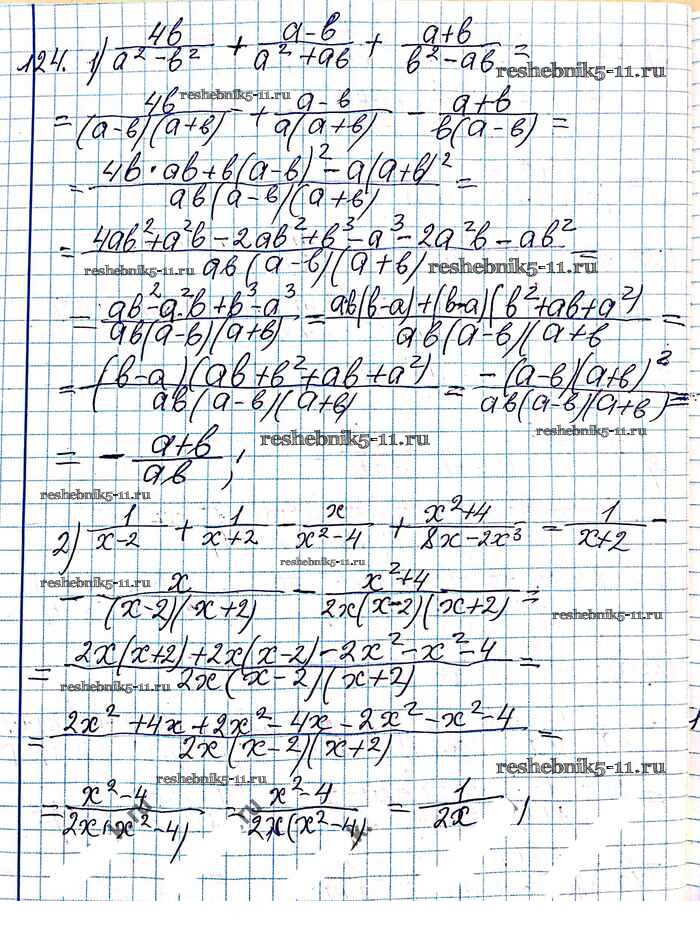 124. 1) 4b/(a²-b²) + (a-b)/(a²+ab) + (a+b)/(b²-ab) =
reshebnik5-11.ru
reshebnik5-11.ru
= 4b/((a-b)(a+b)) + (a-b)/(a(a+b)) - (a+b)/(b(a-b)) =
= (4b·ab+b(a-b)²-a(a+b)²)/(ab(a-b)(a+b)) =
= (4ab²+a²b-2ab²+b³-a³-2a²b-ab²)/(ab(a-b)(a+b)) =
reshebnik5-11.ru reshebnik5-11.ru
= (ab²-a²b+b³-a³)/(ab(a-b)(a+b)) = (ab(b-a)+(b-a)(b²+ab+a²))/(ab(a-b)(a+b =
= ((b-a)(ab+b²+ab+a²))/(ab(a-b)(a+b)) = (-(a-b)(a+b)²)/(ab(a-b)(a+b)) =
reshebnik5-11.ru
= - (a+b)/(ab) ;
reshebnik5-11.ru
reshebnik5-11.ru
2) 1/(x-2) + 1/(x+2) - x/(x²-4) + (x²+4)/(8x-2x³) = 1/(x+2) -
reshebnik5-11.ru
- x/((x-2)(x+2)) - (x²+4)/(2x(x-2)(x+2)) =
reshebnik5-11.ru
= (2x(x+2)+2x(x-2)-2x²-x²-4)/(2x(x-2)(x+2)) =
reshebnik5-11.ru
= (2x²+4x+2x²-4x-2x²-x²-4)/(2x(x-2)(x+2)) =
reshebnik5-11.ru
reshebnik5-11.ru
= (x²-4)/(2x(x²-4)) = (x²-4)/(2x(x²-4)) = 1/(2x) ;